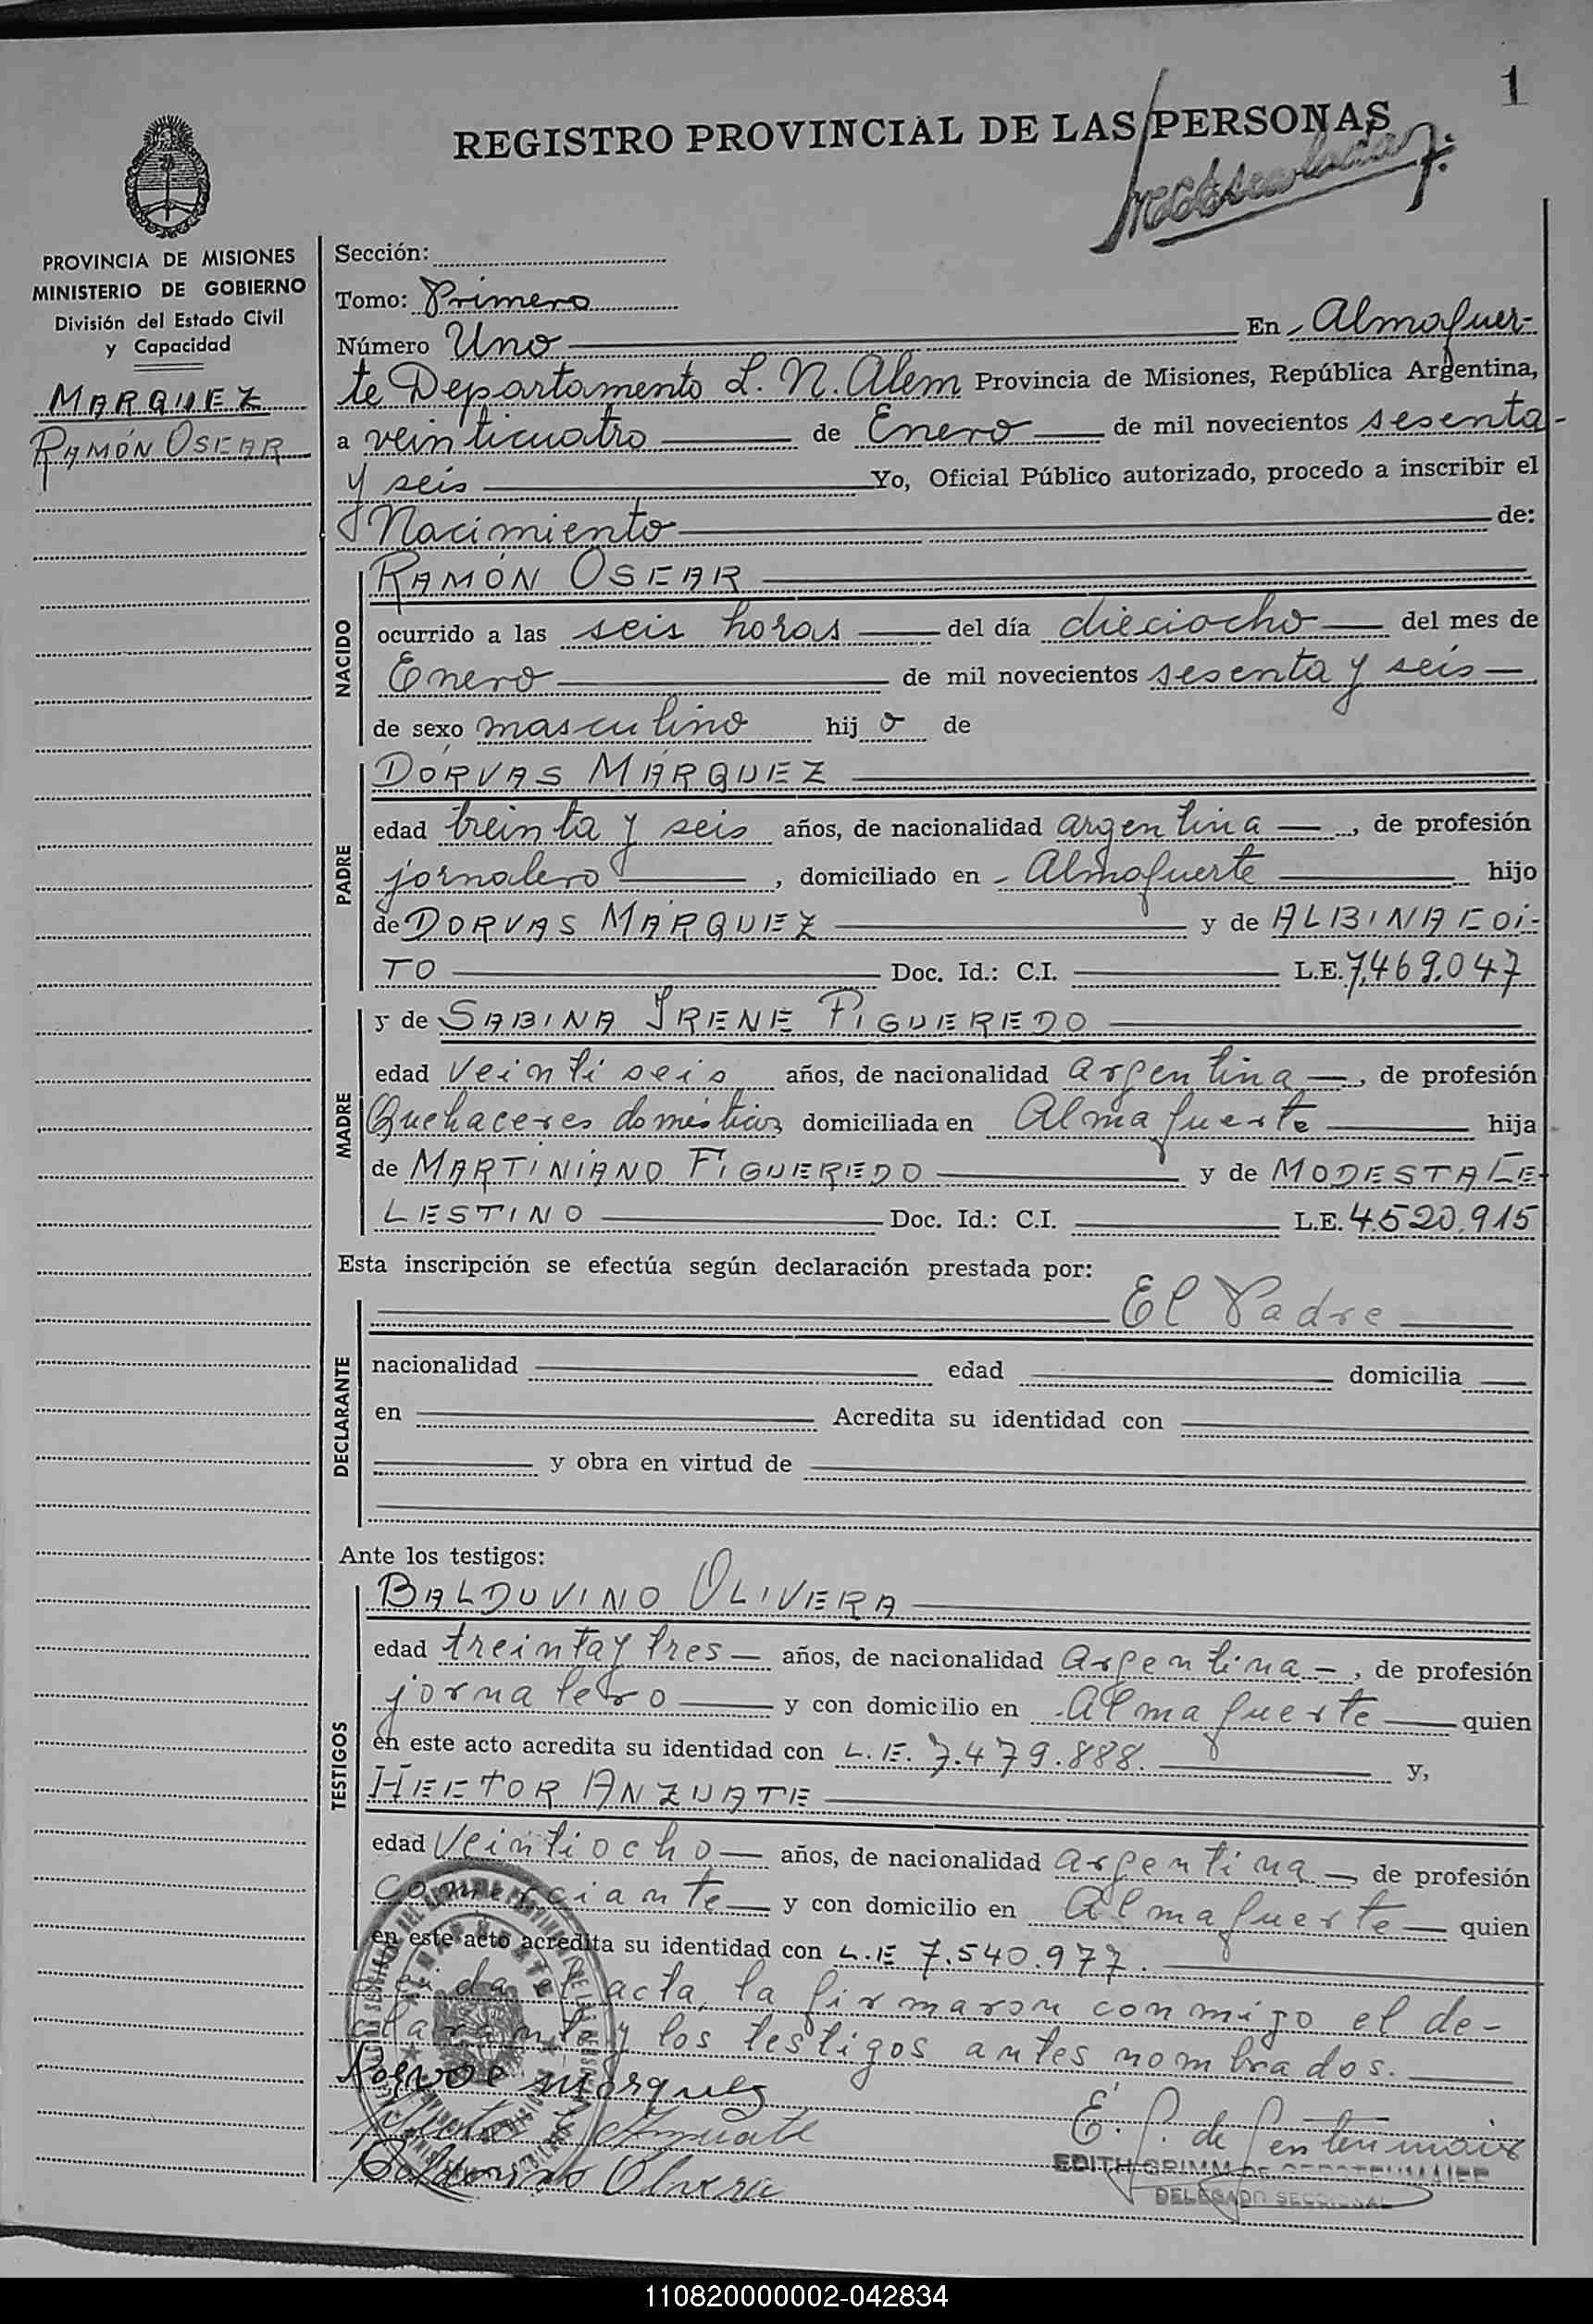 1
REGISTRO PROVINCIAL DE LAS PERSONAS
PROVINCIA DE MISIONES
MINISTERIO DE GOBIERNO
División del Estado Civil
y Capacidad
MARQUEZ
RAMÓN OSCAR
Sección:
Tomo: Primero
Número Uno En Almafuer-
te Departamento L. N. Alem Provincia de Misiones, República Argentina,
a veinticuatro de Enero de mil novecientos sesenta
y seis Yo, Oficial Público autorizado, procedo a inscribir el
Nacimiento de:
NACIDO
RAMÓN OSCAR
ocurrido a las seis horas del día dieciocho del mes de
Enero de mil novecientos sesenta y seis
de sexo masculino hijo de
PADRE
DORVAS MARQUEZ
edad treinta y seis años, de nacionalidad argentina, de profesión
jornalero, domiciliado en Almafuerte hijo
de DORVAS MARQUEZ y de ALBINA COI-
TO Doc. Id.: C.I. L.E. 7.469.047
MADRE
y de SABINA IRENE FIGUEREDO
edad veintiseis años, de nacionalidad argentina, de profesión
Quehaceres domésticos domiciliada en Almafuerte hija
de MARTINIANO FIGUEREDO y de MODESTA CE-
LESTINO Doc. Id.: C.I. L.E. 4.520.915
Esta inscripción se efectúa según declaración prestada por:
DECLARANTE
El Padre
nacionalidad edad domicilia
en Acredita su identidad con
y obra en virtud de
Ante los testigos:
TESTIGOS
BALDUVINO OLIVERA
edad treinta y tres años, de nacionalidad argentina, de profesión
jornalero y con domicilio en Almafuerte quien
en este acto acredita su identidad con L.E. 7.479.888. y,
HECTOR ANZUATE
edad veintiocho años, de nacionalidad argentina de profesión
comerciante y con domicilio en Almafuerte quien
en este acto acredita su identidad con L.E 7.540.977.
Leida el acta, la firmaron conmigo el de-
clarante y los testigos antes nombrados.
Dorvos Marquez
Anzuate
Baldovino Olivera
E. G. de
EDITH GRIMM DE
DELEGADO SECCIONAL
110820000002-042834